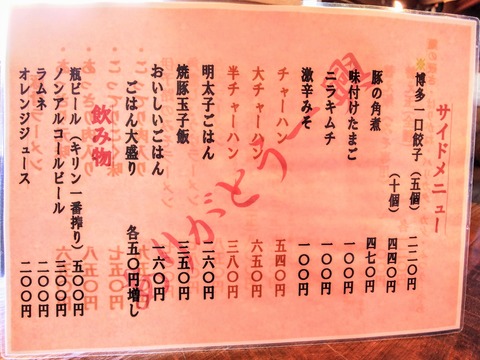 サイドメニュー
※博多一口餃子（五個） 二二〇円
（十個） 四四〇円
豚の角煮 四七〇円
味付けたまご 一〇〇円
ニラキムチ 一〇〇円
激辛みそ 一〇〇円
チャーハン 五四〇円
大チャーハン 六五〇円
半チャーハン 三八〇円
明太子ごはん 二六〇円
焼豚玉子飯 三五〇円
おいしいごはん 一六〇円
ごはん大盛り 各五〇円増し
飲み物
瓶ビール（キリン一番搾り） 五〇〇円
ノンアルコールビール 三〇〇円
ラムネ 二〇〇円
オレンジジュース 二〇〇円